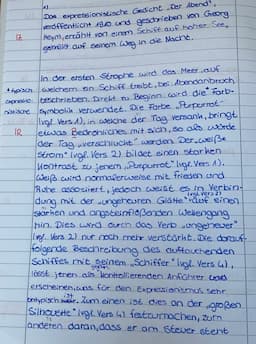 a)
Das expressionistische Gedicht „Der Abend",
veröffentlicht 1910 und geschrieben von Georg
Heym, erzählt von einem Schiff auf hoher See,
gehüllt auf seinem Weg in die Nacht.
In der ersten Strophe wird das Meer, auf
welchem ein Schiff treibt, bei Abendanbruch
beschrieben. Direkt zu Beginn wird die Farb-
symbolik verwendet. Die Farbe „Purpurrot"
(vgl. Vers 1), in welche der Tag versank, bringt
etwas Bedrohliches mit sich, so als würde
der Tag „verschluckt" werden. Der „weiße
Strom" (vgl. Vers 2) bildet einen starken
Kontrast zu jenem „Purpurrot" (vgl. Vers 1).
Weiß wird normalerweise mit Frieden und
Ruhe assoziiert, jedoch weist es in Verbin-
(vgl. Vers 2)
dung mit der „ungeheuren Glätte" auf einen
starken und angsteinflößenden Wellengang
hin. Dies wird durch das Verb „ungeheuer"
(vgl. Vers 2) nur noch mehr verstärkt. Die darauf-
folgende Beschreibung des auftauchenden
Schiffes mit seinem „Schiffer" (vgl. Vers 4),
lässt jenen als kontrollierenden Anführer
erscheinen, was für den Expressionismus sehr
untypisch ist. Zum einen ist dies an der „großen
Silhouette" (vgl. Vers 4) festzumachen, zum
anderen daran, dass er am Steuer steht